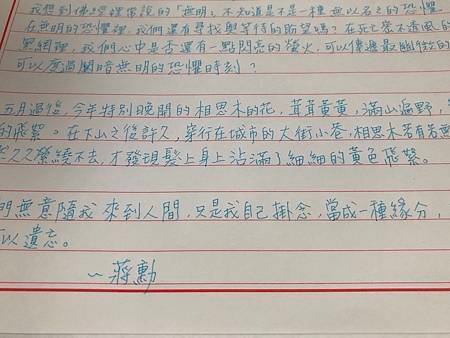 我想到佛經裡常說的「無明」，不知道是不是一種無以名之的恐懼
在無明的恐懼裡，我們還有尋找與等待的盼望嗎？在死亡密不透風的
黑網裡，我們心中是否還有一點閃亮的螢火，可以傳遞最幽微的
可以度過闇暗無明的恐懼時刻？
五月過後，今年特別晚開的相思木的花，茸茸黃黃，滿山遍野，
的飛絮。在下山之後許久，穿行在城市的大街小巷，相思木若有若無
久久縈繞不去，才發現髮上身上沾滿了細細的黃色飛絮。
們無意隨我來到人間，只是我自己掛念，當成一種緣分，
以遺忘。
～蔣勳